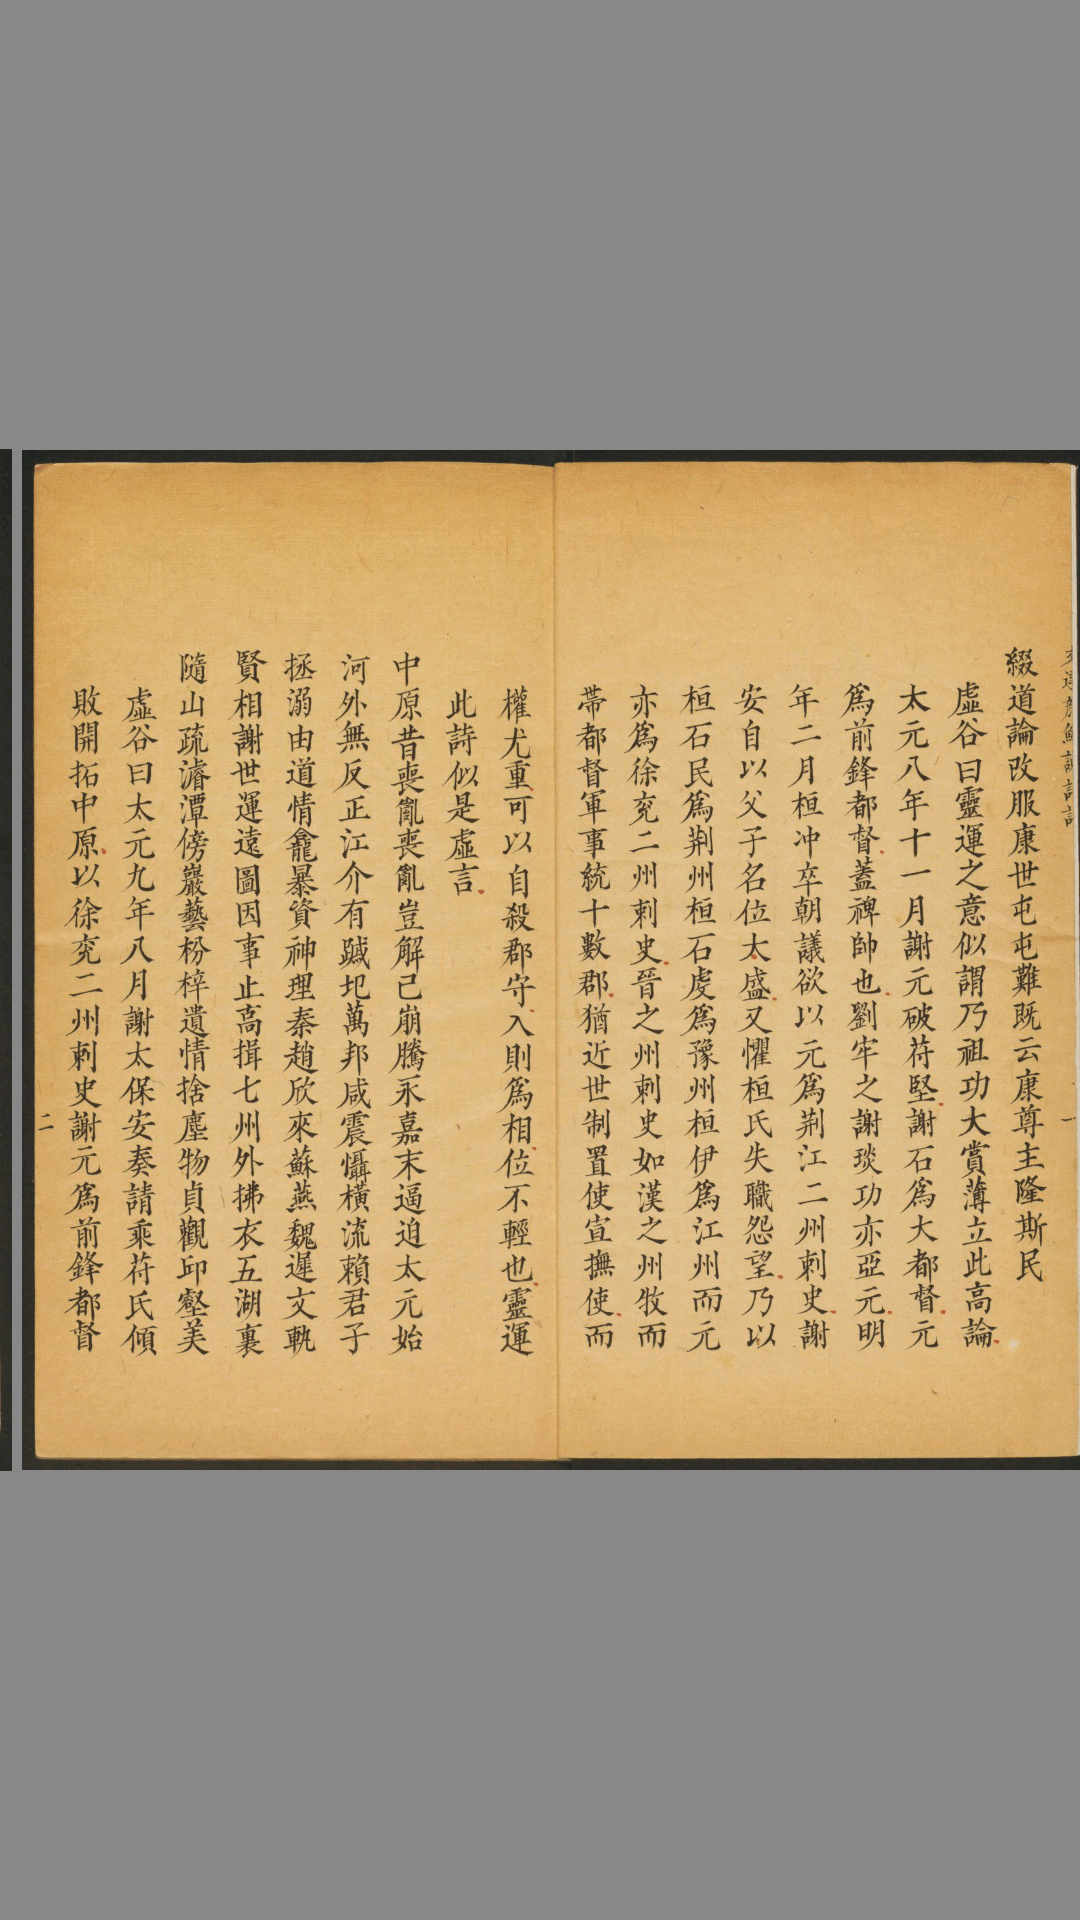 綴道論改服康世屯屯難既云康尊主隆斯民
虛谷曰靈運之意似謂乃祖功大賞薄立此高論
太元八年十一月謝元破苻堅謝石爲大都督元
爲前鋒都督蓋裨帥也劉牢之謝琰功亦亞元明
年二月桓冲卒朝議欲以元爲荆江二州刺史謝
安自以父子名位太盛又懼桓氏失職怨望乃以
桓石民爲荆州桓石虔爲豫州桓伊爲江州而元
亦爲徐兖二州刺史晉之州刺史如漢之州牧而
帶都督軍事統十數郡猶近世制置使宣撫使而
權尤重可以自殺郡守入則爲相位不輕也靈運
此詩似是虛言
中原昔喪亂喪亂豈解已崩騰永嘉末逼迫太元始
河外無反正江介有蹙圮萬邦咸震懾橫流賴君子
拯溺由道情龕暴資神理秦趙欣來蘇燕魏遲文軌
賢相謝世運遠圖因事止高揖七州外拂衣五湖裏
隨山疏濬潭傍巖藝枌梓遺情捨塵物貞觀邱壑美
虛谷曰太元九年八月謝太保安奏請乘苻氏傾
敗開拓中原以徐兖二州刺史謝元爲前鋒都督
一
二